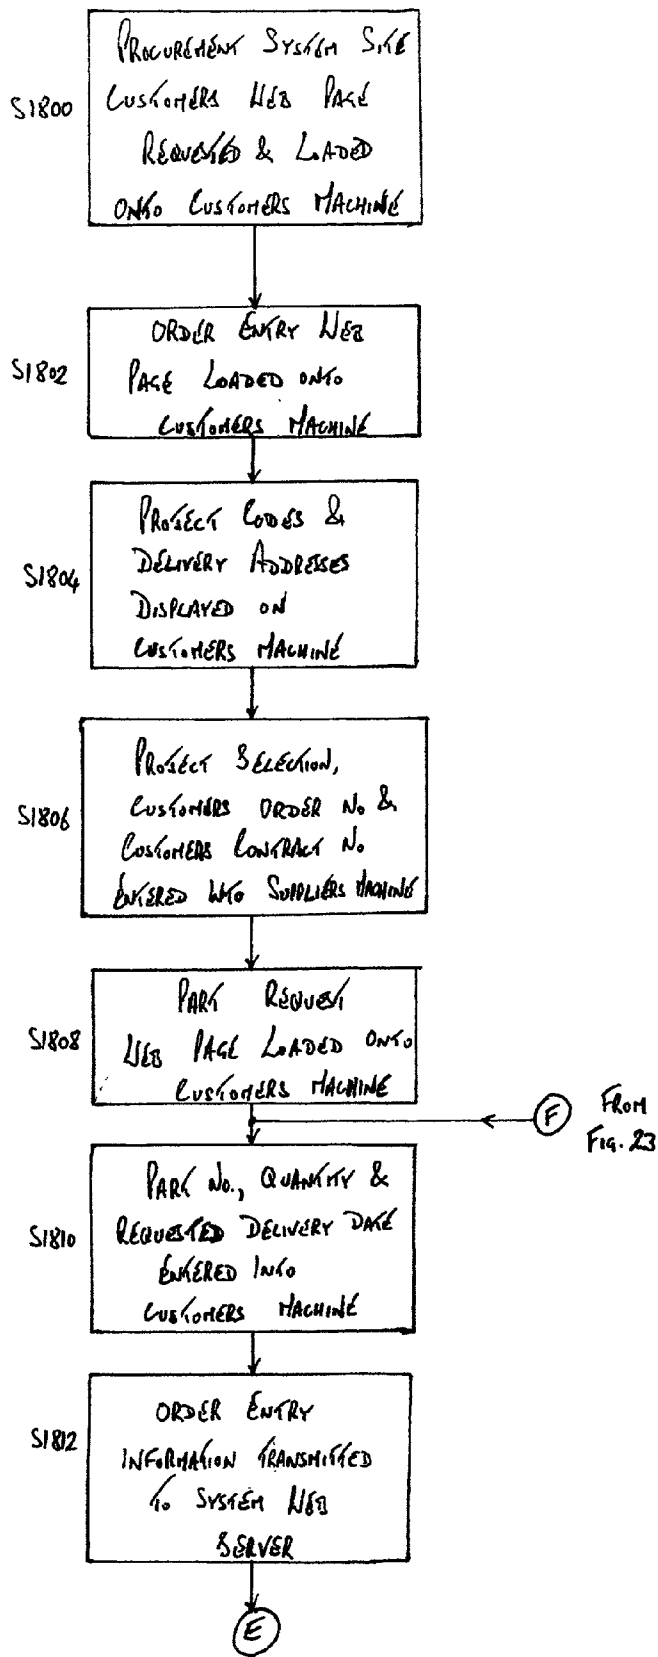 PROCUREMENT SYSTEM SITE
S1800
CUSTOMERS WEB PAGE
REQUESTED & LOADED
ONTO CUSTOMERS MACHINE
ORDER ENTRY WEB
S1802
PAGE LOADED ONTO
CUSTOMERS MACHINE
PROJECT CODES &
S1804
DELIVERY ADDRESSES
DISPLAYED ON
CUSTOMERS MACHINE
PROJECT SELECTION,
S1806
CUSTOMERS ORDER NO &
CUSTOMERS CONTRACT NO
ENTERED INTO SUPPLIERS MACHINE
PART REQUEST
S1808
WEB PAGE LOADED ONTO
CUSTOMERS MACHINE
F
FROM
FIG. 23
PART NO., QUANTITY &
S1810
REQUESTED DELIVERY DATE
ENTERED INTO
CUSTOMERS MACHINE
ORDER ENTRY
S1812
INFORMATION TRANSMITTED
TO SYSTEM WEB
SERVER
E